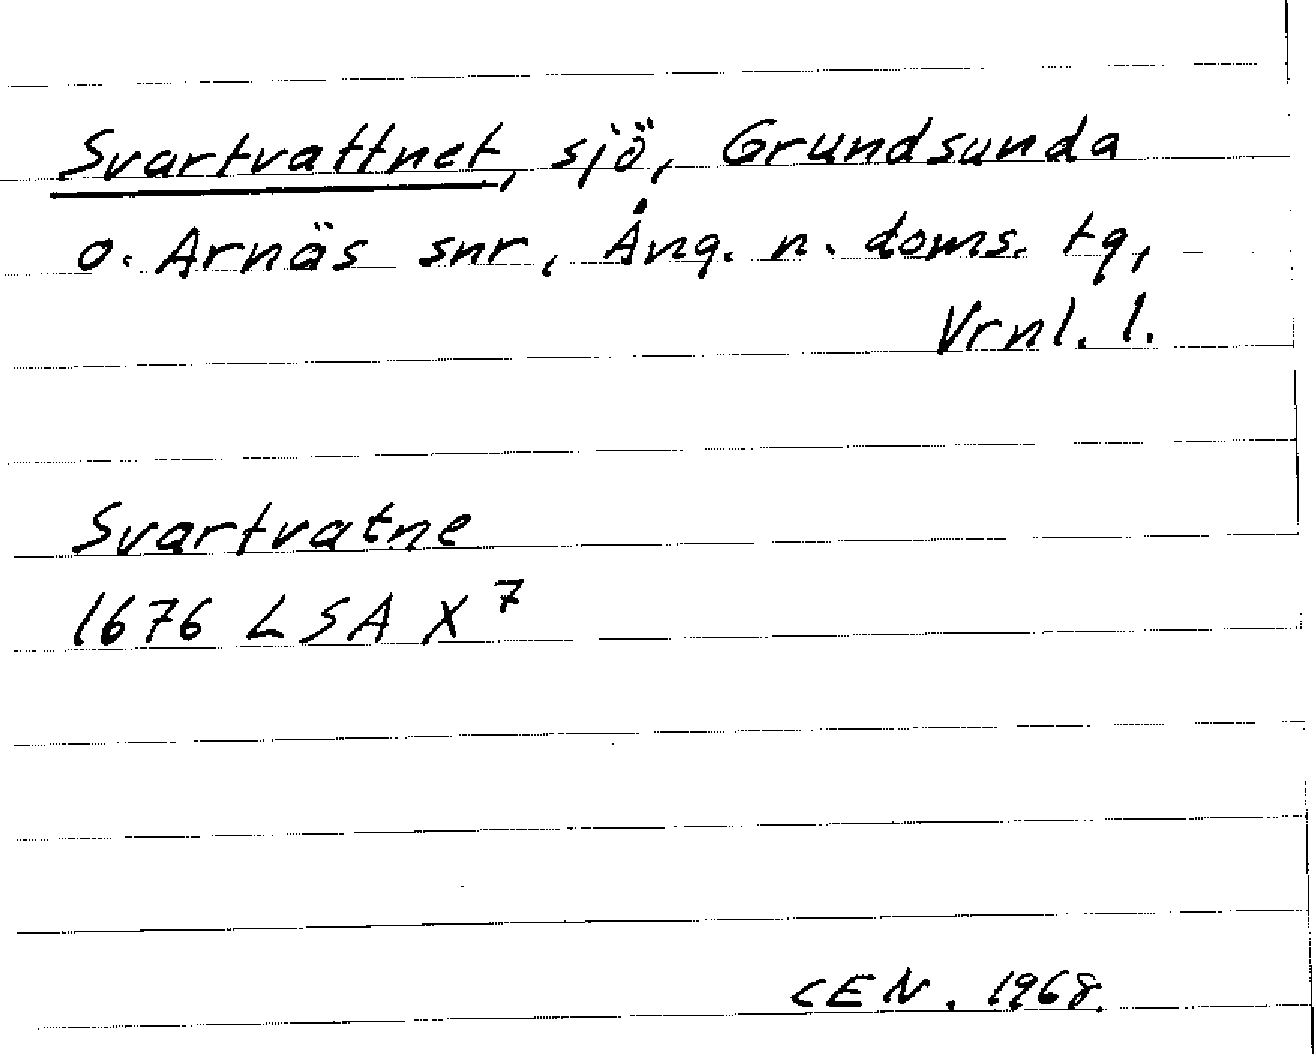 Svartvattnet, sjö, Grundsunda
o. Arnäs snr, Ång. n. doms. tg,
Vrnl. l.
Svartvatne
1676 LSA X 7
CEN. 1968.